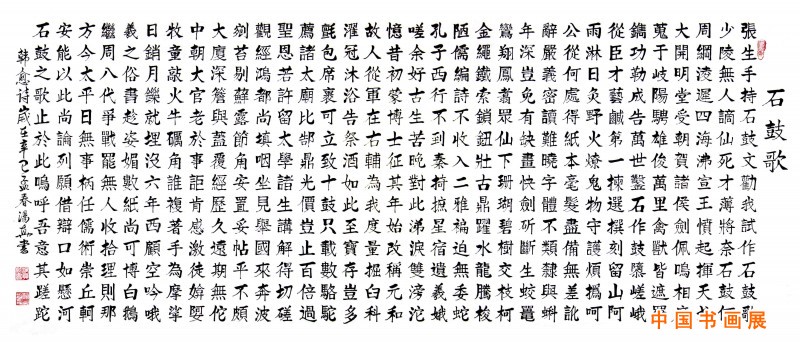 石鼓歌
張生手持石鼓文勸我試作石鼓歌
少陵無人謫仙死才薄將奈石鼓何
周綱陵遲四海沸宣王憤起揮天戈
大開明堂受朝賀諸侯劍佩鳴相磨
蒐于岐陽騁雄俊萬里禽獸皆遮羅
鐫功勒成告萬世鑿石作鼓隳嵯峨
從臣才藝鹹第一揀選撰刻留山阿
雨淋日炙野火燎鬼物守護煩撝呵
公從何處得紙本毫髮盡備無差訛
辭嚴義密讀難曉字體不類隸與蝌
年深豈免有缺畫快劍斫斷生蛟鼉
鸞翔鳳翥眾仙下珊瑚碧樹交枝柯
金繩鐵索鎖鈕壯古鼎躍水龍騰梭
陋儒編詩不收入二雅褊迫無委蛇
孔子西行不到秦掎摭星宿遺羲娥
嗟余好古生苦晚對此涕淚雙滂沱
憶昔初蒙博士征其年始改稱元和
故人從軍在右輔為我度量掘臼科
濯冠沐浴告祭酒如此至寶存豈多
氈包席裹可立致十鼓只載數駱駝
薦諸太廟比郜鼎光價豈止百倍過
聖恩若許留太學諸生講解得切磋
觀經鴻都尚填咽坐見舉國來奔波
剜苔剔蘚露節角安置妥帖平不頗
大廈深簷與蓋覆經歷久遠期無佗
中朝大官老於事詎肯感激徒媕婀
牧童敲火牛礪角誰複著手為摩挲
日銷月鑠就埋沒六年西顧空吟哦
羲之俗書趁姿媚數紙尚可博白鵝
繼周八代爭戰罷無人收拾理則那
方今太平日無事柄任儒術崇丘軻
安能以此尚論列願借辯口如懸河
石鼓之歌止於此嗚呼吾意其蹉跎
韓愈詩歲在辛巳孟春書
中国书画展